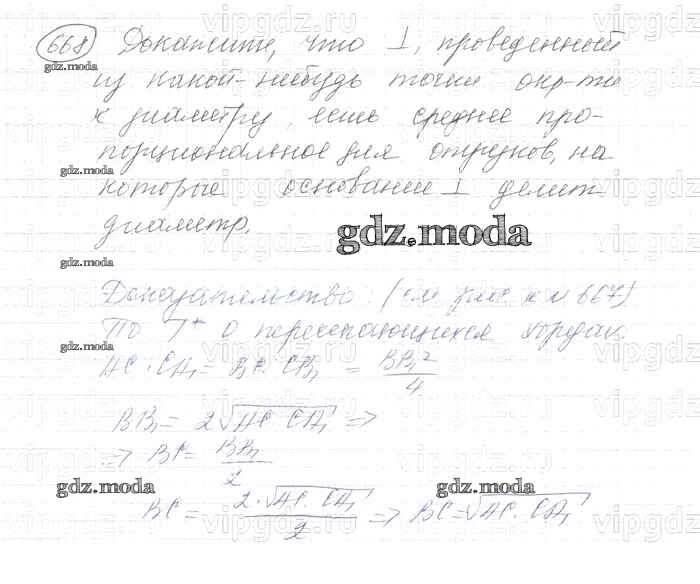 668 Докажите, что ⊥, проведенный
из какой-нибудь точки окр-ти
к диаметру, есть среднее про-
порциональное для отрезков, на
которые основание ⊥ делит
диаметр.
gdz.moda
Доказательство: (см рис к N 667)
По Т* о пересекающихся хордах.
AC · CA₁ = BC · CB₁ = BB₁²/4
BB₁ = 2√AC · CA₁ ⇒
⇒ BC = BB₁/2
BC = 2·√AC · CA₁/2 ⇒ BC = √AC · CA₁
gdz.moda
gdz.moda
gdz.moda
gdz.moda
gdz.moda
gdz.moda